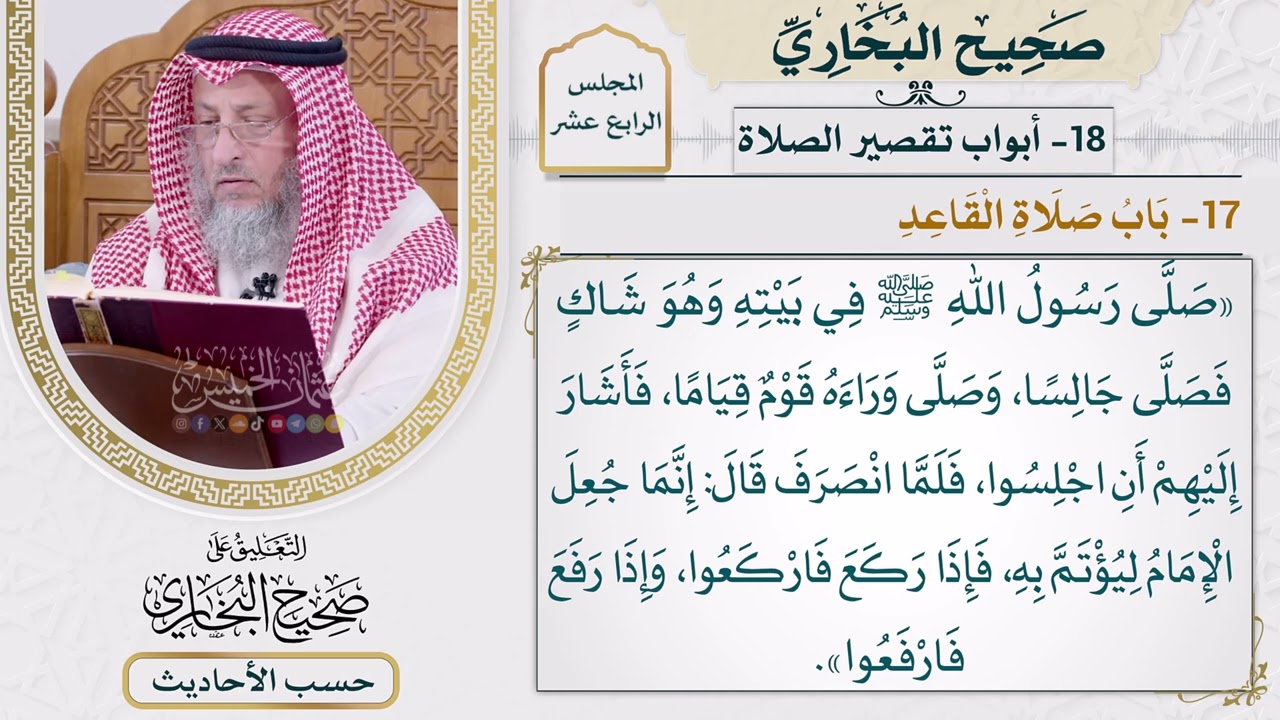 صَحِيح البُخَارِيِّ
المجلس
الرابع عشر
18- أبواب تقصير الصلاة
17- بَابُ صَلَاةِ الْقَاعِدِ
«صَلَّى رَسُولُ اللهِ ﷺ فِي بَيْتِهِ وَهُوَ شَاكٍ
فَصَلَّى جَالِسًا، وَصَلَّى وَرَاءَهُ قَوْمٌ قِيَامًا، فَأَشَارَ
إِلَيْهِمْ أَنِ اجْلِسُوا، فَلَمَّا انْصَرَفَ قَالَ: إِنَّمَا جُعِلَ
الْإِمَامُ لِيُؤْتَمَّ بِهِ، فَإِذَا رَكَعَ فَارْكَعُوا، وَإِذَا رَفَعَ
فَارْفَعُوا».
عثمان الخميس
التَّعْلِيقُ عَلَى
صَحِيحُ البُخَارِي
حسب الأحاديث